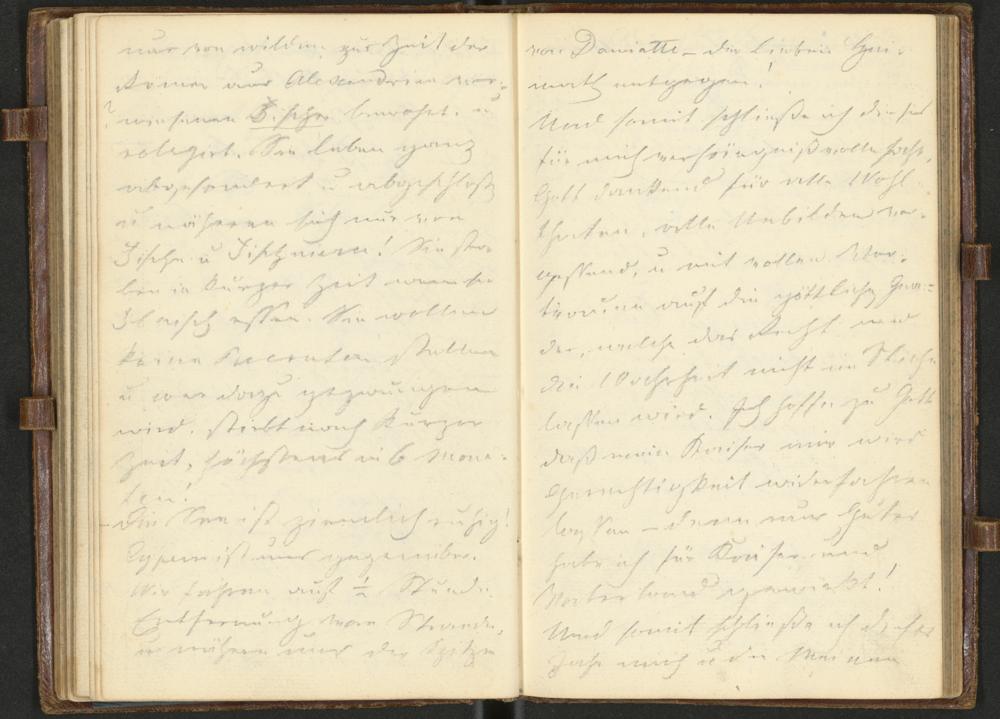 nur von wilden zur Zeit der
Römer aus Alexandrien ver-
wiesenen Fischer bewohnt. u
relegirt. Sie leben ganz
abgesondert u abgeschloßen
u nähren sich nur von
Fische u Fischnieren! Sie ster-
ben in kurzer Zeit wenn sie
Fleisch essen. Sie wollen
keine Recruten stellen
u wer dazu gezwungen
wird, stirbt nach kurzer
Zeit, höchstens in 6 Mona-
ten!
– Die See ist ziemlich ruhig!
Cypern ist uns gegenüber.
Wir fahren auf ½ Stunde
Entfernung vom Strande,
u nähern uns der Spitze
von Damiatte – der lieben Hei-
math entgegen!
Und somit schließe ich dieses
für mich verhängnißvolle Jahr,
Gott dankend für alle Wohl-
thaten, alle Unbilden ver-
gessend, u mit vollem Ver-
trauen auf die göttliche Gna-
de, welche das Recht und
die Wahrheit nicht im Stiche
lassen wird. Ich hoffe zu Gott
daß mein Kaiser mir wird
Gerechtigkeit widerfahren
lassen – denn nur Gutes
habe ich für Kaiser und
Vaterland gewirkt!
Und somit schließe ich dieses
Jahr mich u die Meinen